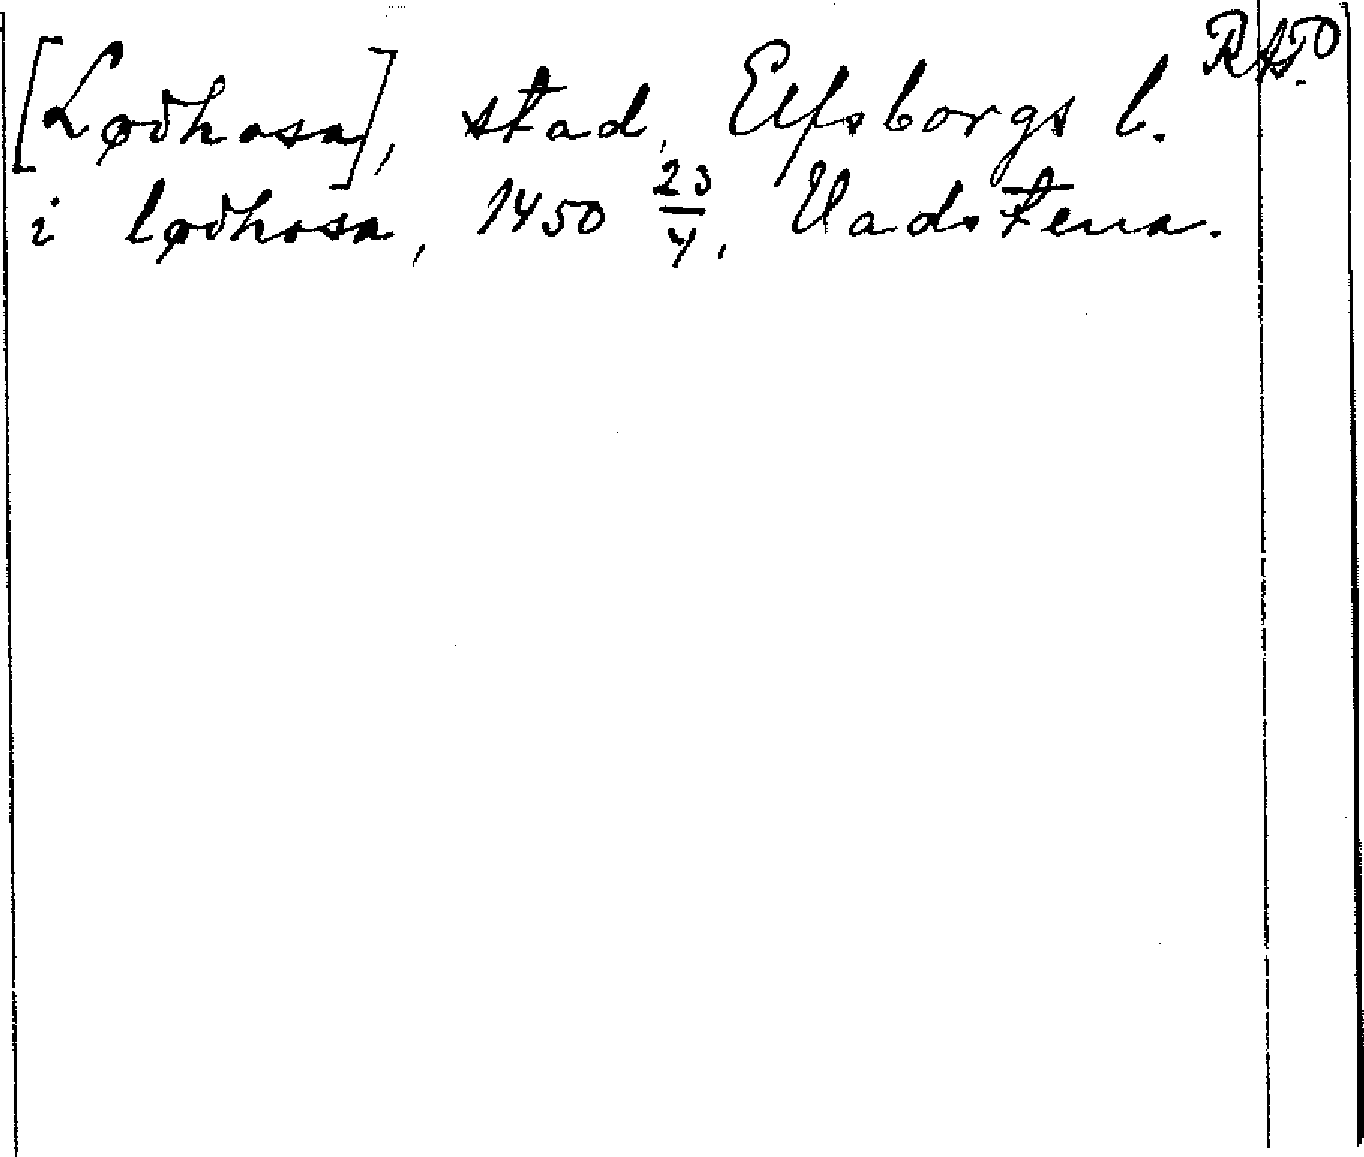 [Løðhosa], stad, Elfsborgs l.
i løðhosa, 1450 23/4, Vadstena.